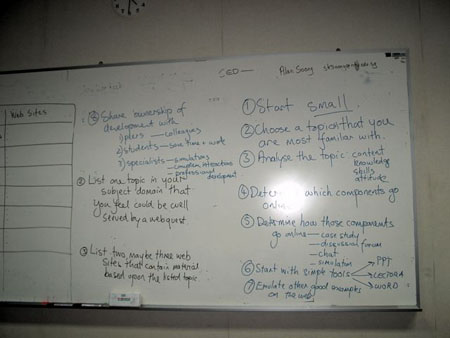 Web Sites
⑧ Share ownership of
development with
1) peers — colleagues
2) students — save time + work
3) specialists — simulations
— complex interactions
— professional development
② List one topic in your
subject domain that
you feel could be well
served by a webquest
③ List two, maybe three web
sites that contain material
based upon the listed topic
CED — Alan Soong
① Start small.
② Choose a topic that you
are most familiar with.
③ Analyse the topic content
knowledge
skills
attitude
④ Determine which components go
online
⑤ Determine how those components
go online — case study
— discussion forum
— chat
— simulation
⑥ Start with simple tools PPT
LECTORA
WORD
⑦ Emulate other good examples
on the web